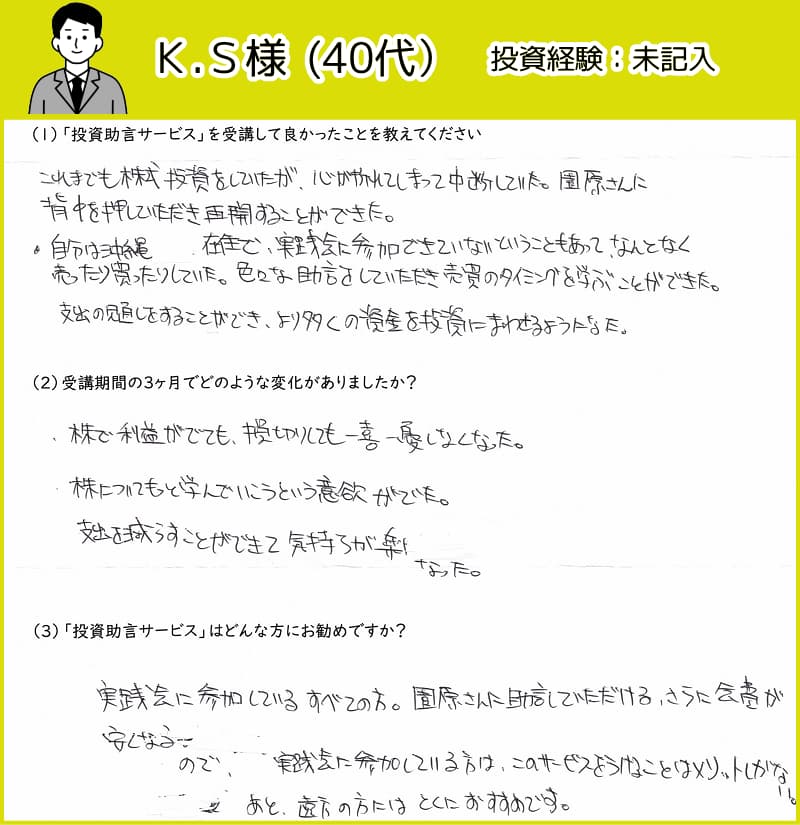 K.S様 (40代) 投資経験：未記入
(1)「投資助言サービス」を受講して良かったことを教えてください
これまでも株式投資をしていたが、心がやれてしまって中断していた。園原さんに
背中を押していただき再開することができた。
・自分は沖縄 在住で、実践会に参加できていないということもあって、なんとなく
売ったり買ったりしていた。色々な助言をしていただき売買のタイミングを学ぶことができた。
支出の見直しをすることができ、より多くの資金を投資にまわせるようになった。
(2)受講期間の3ヶ月でどのような変化がありましたか？
・株で利益がでても、損切りしても一喜一憂しなくなった。
・株についてもっと学んでいこうという意欲がでた。
支出を減らすことができて気持ちが楽に
なった。
(3)「投資助言サービス」はどんな方にお勧めですか？
実践会に参加しているすべての方。園原さんに助言していただける、さらに会費が
安くなる
ので、実践会に参加している方は、このサービスをうけることはメリットしかない。
あと、遠方の方にはとくにおすすめです。